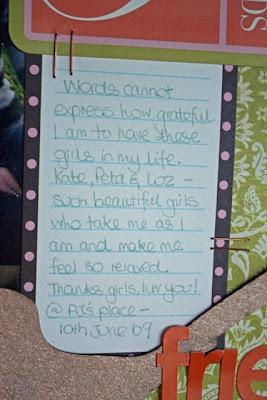 DS
Words cannot
express how grateful
I am to have these
girls in my life.
Kate, Peta & Loz -
such beautiful girls
who take me as I
am and make me
feel so relaxed.
Thanks girls, luv you!
@ PJ's place -
10th June '09
frie